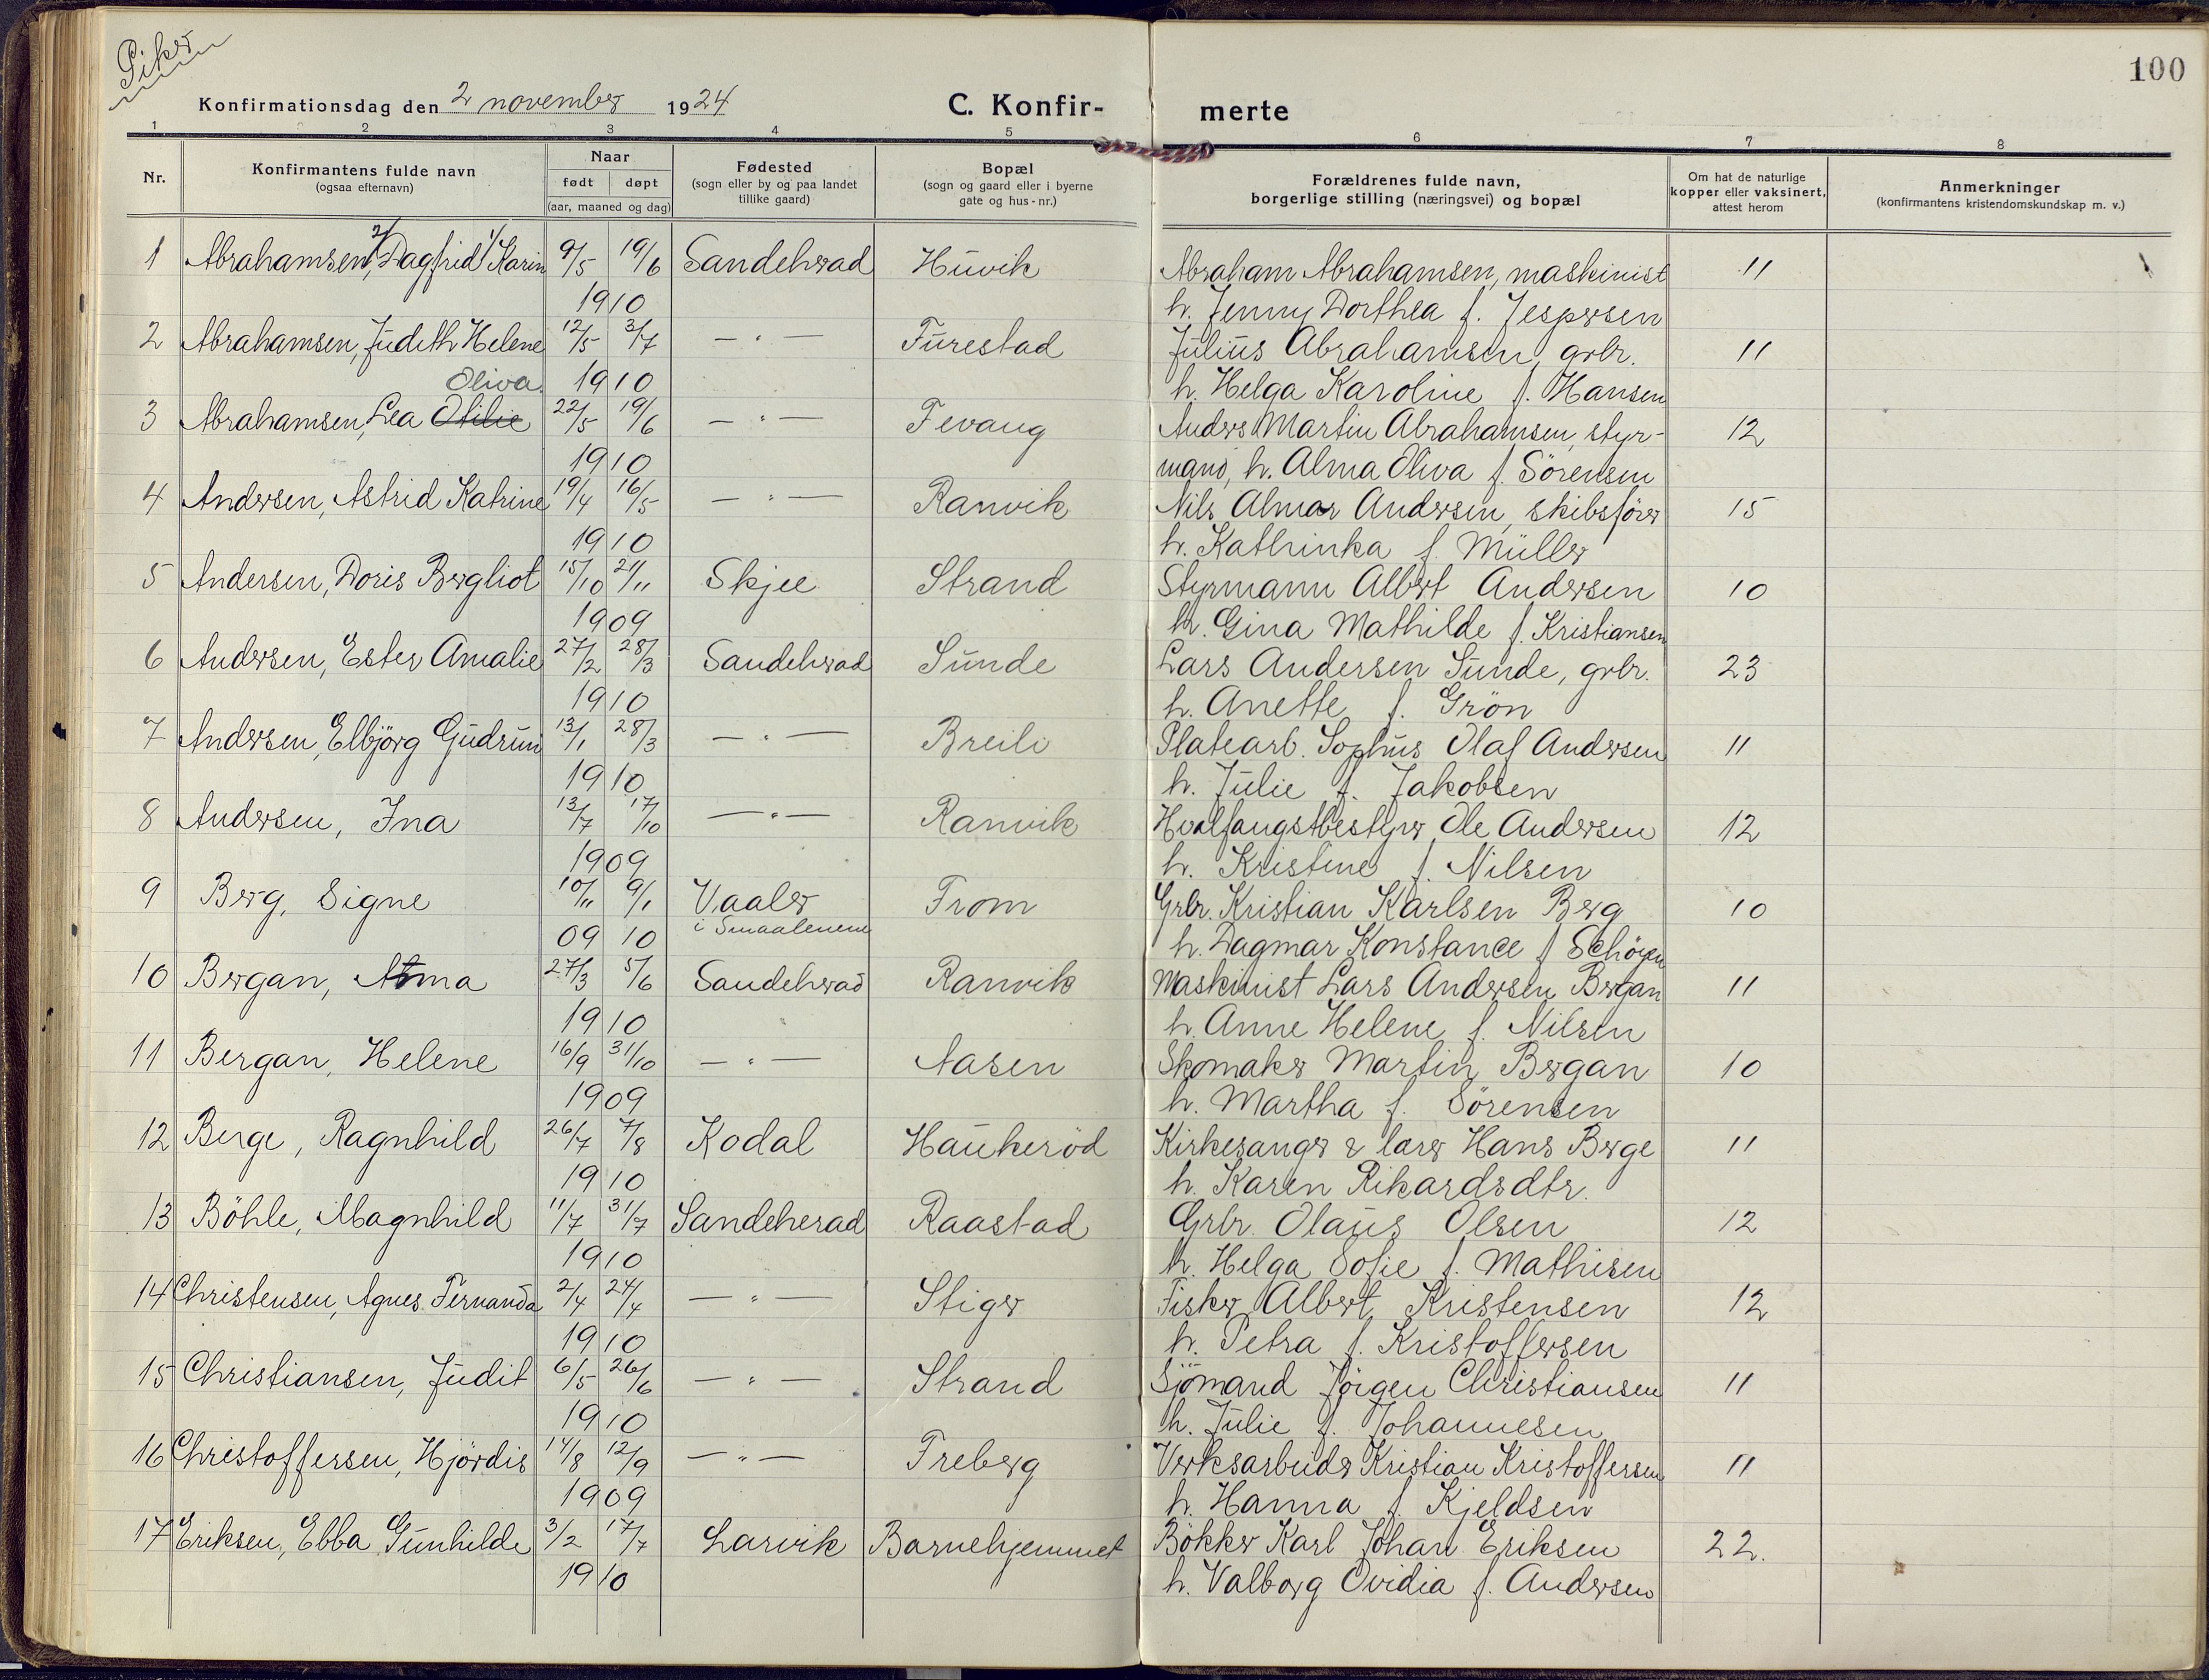 Piker
100
Konfirmationsdag den 2 november 1924
C. Konfir- merte
1 2 3 4 5 6 7 8
Nr.
Konfirmantens fulde navn
(ogsaa efternavn)
Naar
født døpt
(aar, maaned og dag)
Fødested
(sogn eller by og paa landet
tillike gaard)
Bopæl
(sogn og gaard eller i byerne
gate og hus-nr.)
Forældrenes fulde navn,
borgerlige stilling (næringsvei) og bopæl
Om hat de naturlige
kopper eller vaksinert,
attest herom
Anmerkninger
(konfirmantens kristendomskundskap m. v.)
1 Abrahamsen, 2/ Dagfrid 1/ Karin 9/5 19/6 Sandeherad Huvik Abraham Abrahamsen, maskinist 11
1910 h. Jenny Dorthea f. Jespersen
2 Abrahamsen, Judith Helene 12/5 3/7 — " — Furestad Julius Abrahamsen, grbr. 11
Oliva 1910 h. Helga Karoline f. Hansen
3 Abrahamsen, Lea Otilie 22/5 19/6 — " — Fevang Anders Martin Abrahamsen, styr- 12
1910 mand, h. Alma Oliva f. Sörensen
4 Andersen, Astrid Katrine 19/4 16/5 — " — Ranvik Nils Almar Andersen, skibsförer 15
1910 h. Kathinka f. Müller
5 Andersen, Doris Bergliot 15/10 21/11 Skjee Strand Styrmann Albert Andersen 10
1909 h. Gina Mathilde f. Kristiansen
6 Andersen, Ester Amalie 27/2 28/3 Sandeherad Sunde Lars Andersen Sunde, grbr. 23
1910 h. Anette f. Grön
7 Andersen, Elbjörg Gudrun 13/1 28/3 — " — Breili Platearb. Sophus Olaf Andersen 11
1910 h. Julie f. Jakobsen
8 Andersen, Ina 13/7 17/10 — " — Ranvik Hvalfangstbestyrer Ole Andersen 12
1909 h. Kristine f. Nilsen
9 Berg, Signe 10/11 9/1 Vaaler From Grbr. Kristian Karlsen Berg 10
i Smaalenene
09 10 h. Dagmar Konstance f Schöyen
10 Bergan, Anna 27/3 5/6 Sandeherad Ranvik Maskinist Lars Andersen Bergan 11
1910 h. Anne Helene f. Nilsen
11 Bergan, Helene 16/9 31/10 — " — Aasen Skomaker Martin Bergan 10
1909 h. Martha f. Sörensen
12 Berge, Ragnhild 26/7 7/8 Kodal Haukeröd Kirkesanger & lærer Hans Berge 11
1910 h. Karen Rikardsdtr.
13 Böhle, Magnhild 11/7 31/7 Sandeherad Raastad Grbr. Olaus Olsen 12
1910 h. Helga Sofie f. Mathisen
14 Christensen, Agnes Fernanda 2/4 24/4 — " — Stiger Fisker Albert Kristensen 12
1910 h. Petra f. Kristoffersen
15 Christiansen, Judit 6/5 26/6 — " — Strand Sjömand Jörgen Christiansen 11
1910 h. Julie f. Johannesen
16 Christoffersen, Hjördis 14/8 12/9 — " — Freberg Verksarbeider Kristian Kristoffersen 11
1909 h. Hanna f. Kjeldsen
17 Eriksen, Ebba Gunhilde 3/2 17/7 Larvik Barnehjemmet Bökker Karl Johan Eriksen 22.
1910 h. Valborg Ovidia f. Andersen